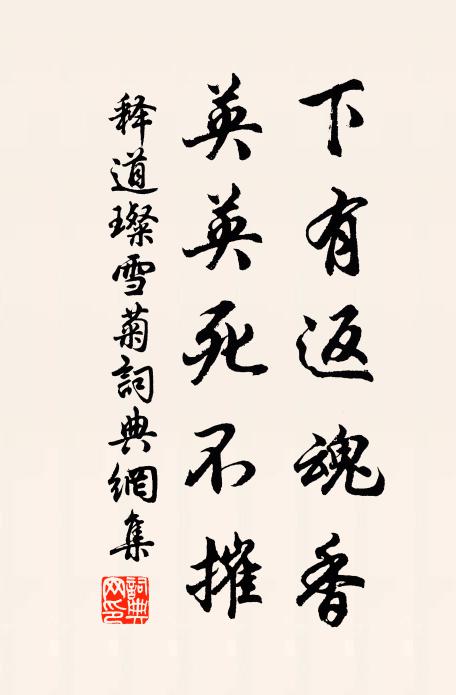 下有返魂香
英英死不摧
释道璨雪菊詞典網集
詞典网印